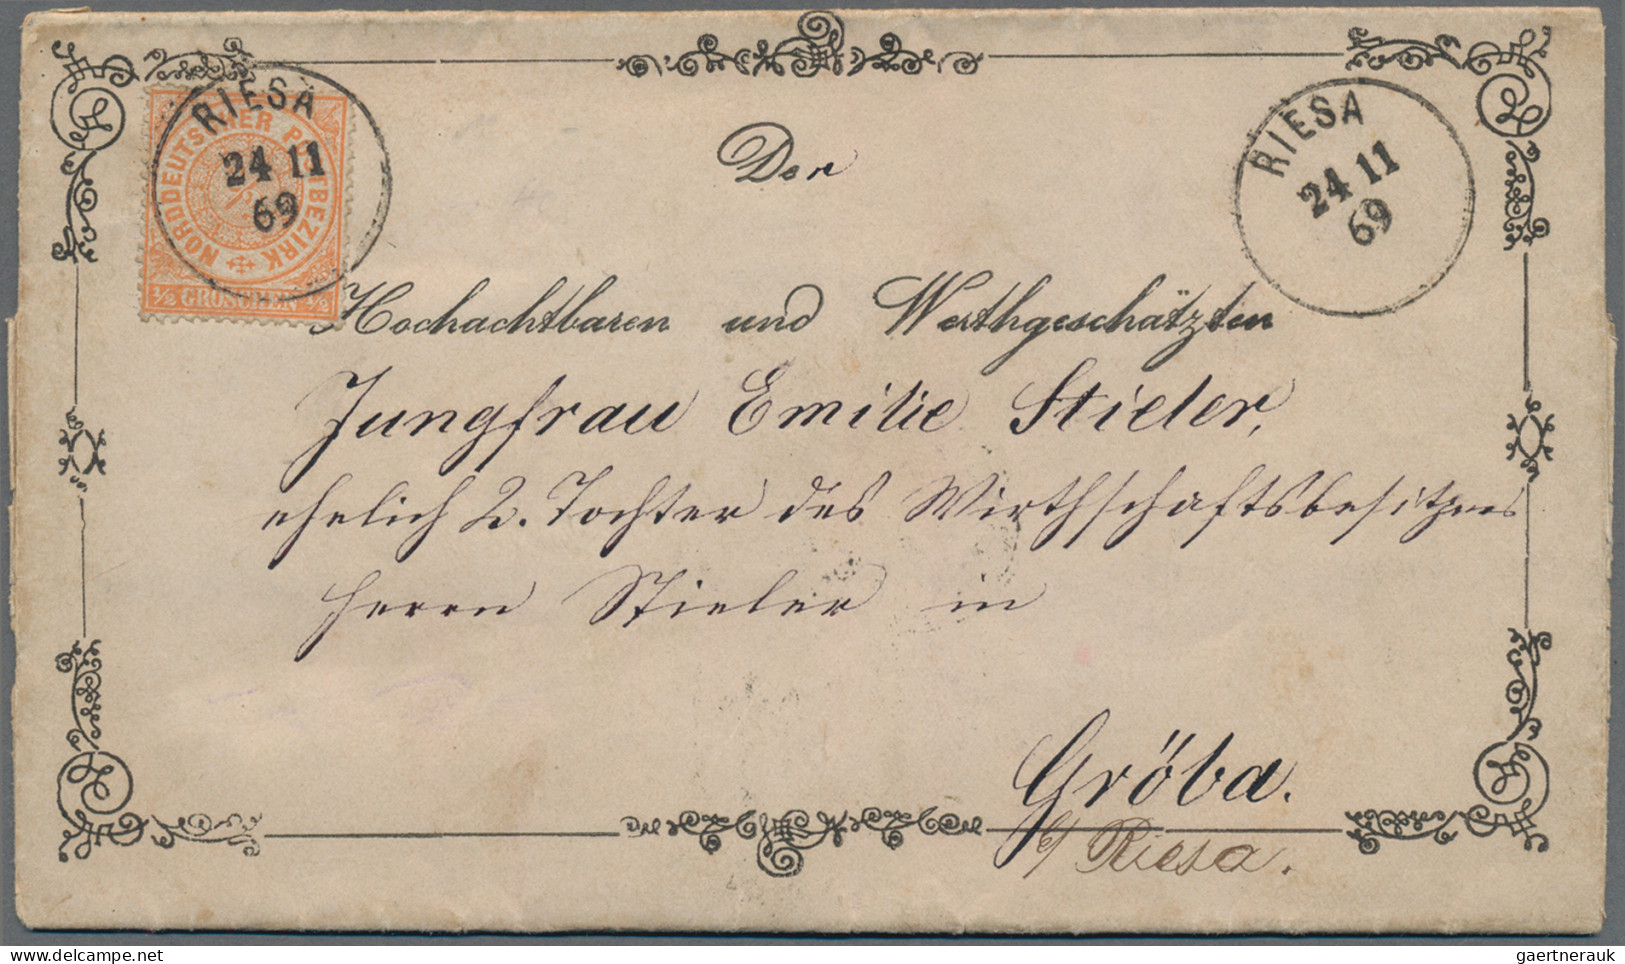 RIESA
24 11
69
NORDDEUTSCHER POSTBEZIRK
1/2 GROSCHEN 1/2
RIESA
24 11
69
Der
Hochachtbaren und Werthgeschätzten
Jungfrau Emilie Stieler,
ehelich 2. Tochter des Wirthschaftsbesitzers
Herrn Stieler in
Gröba.
b/ Riesa.
gaertnerauk